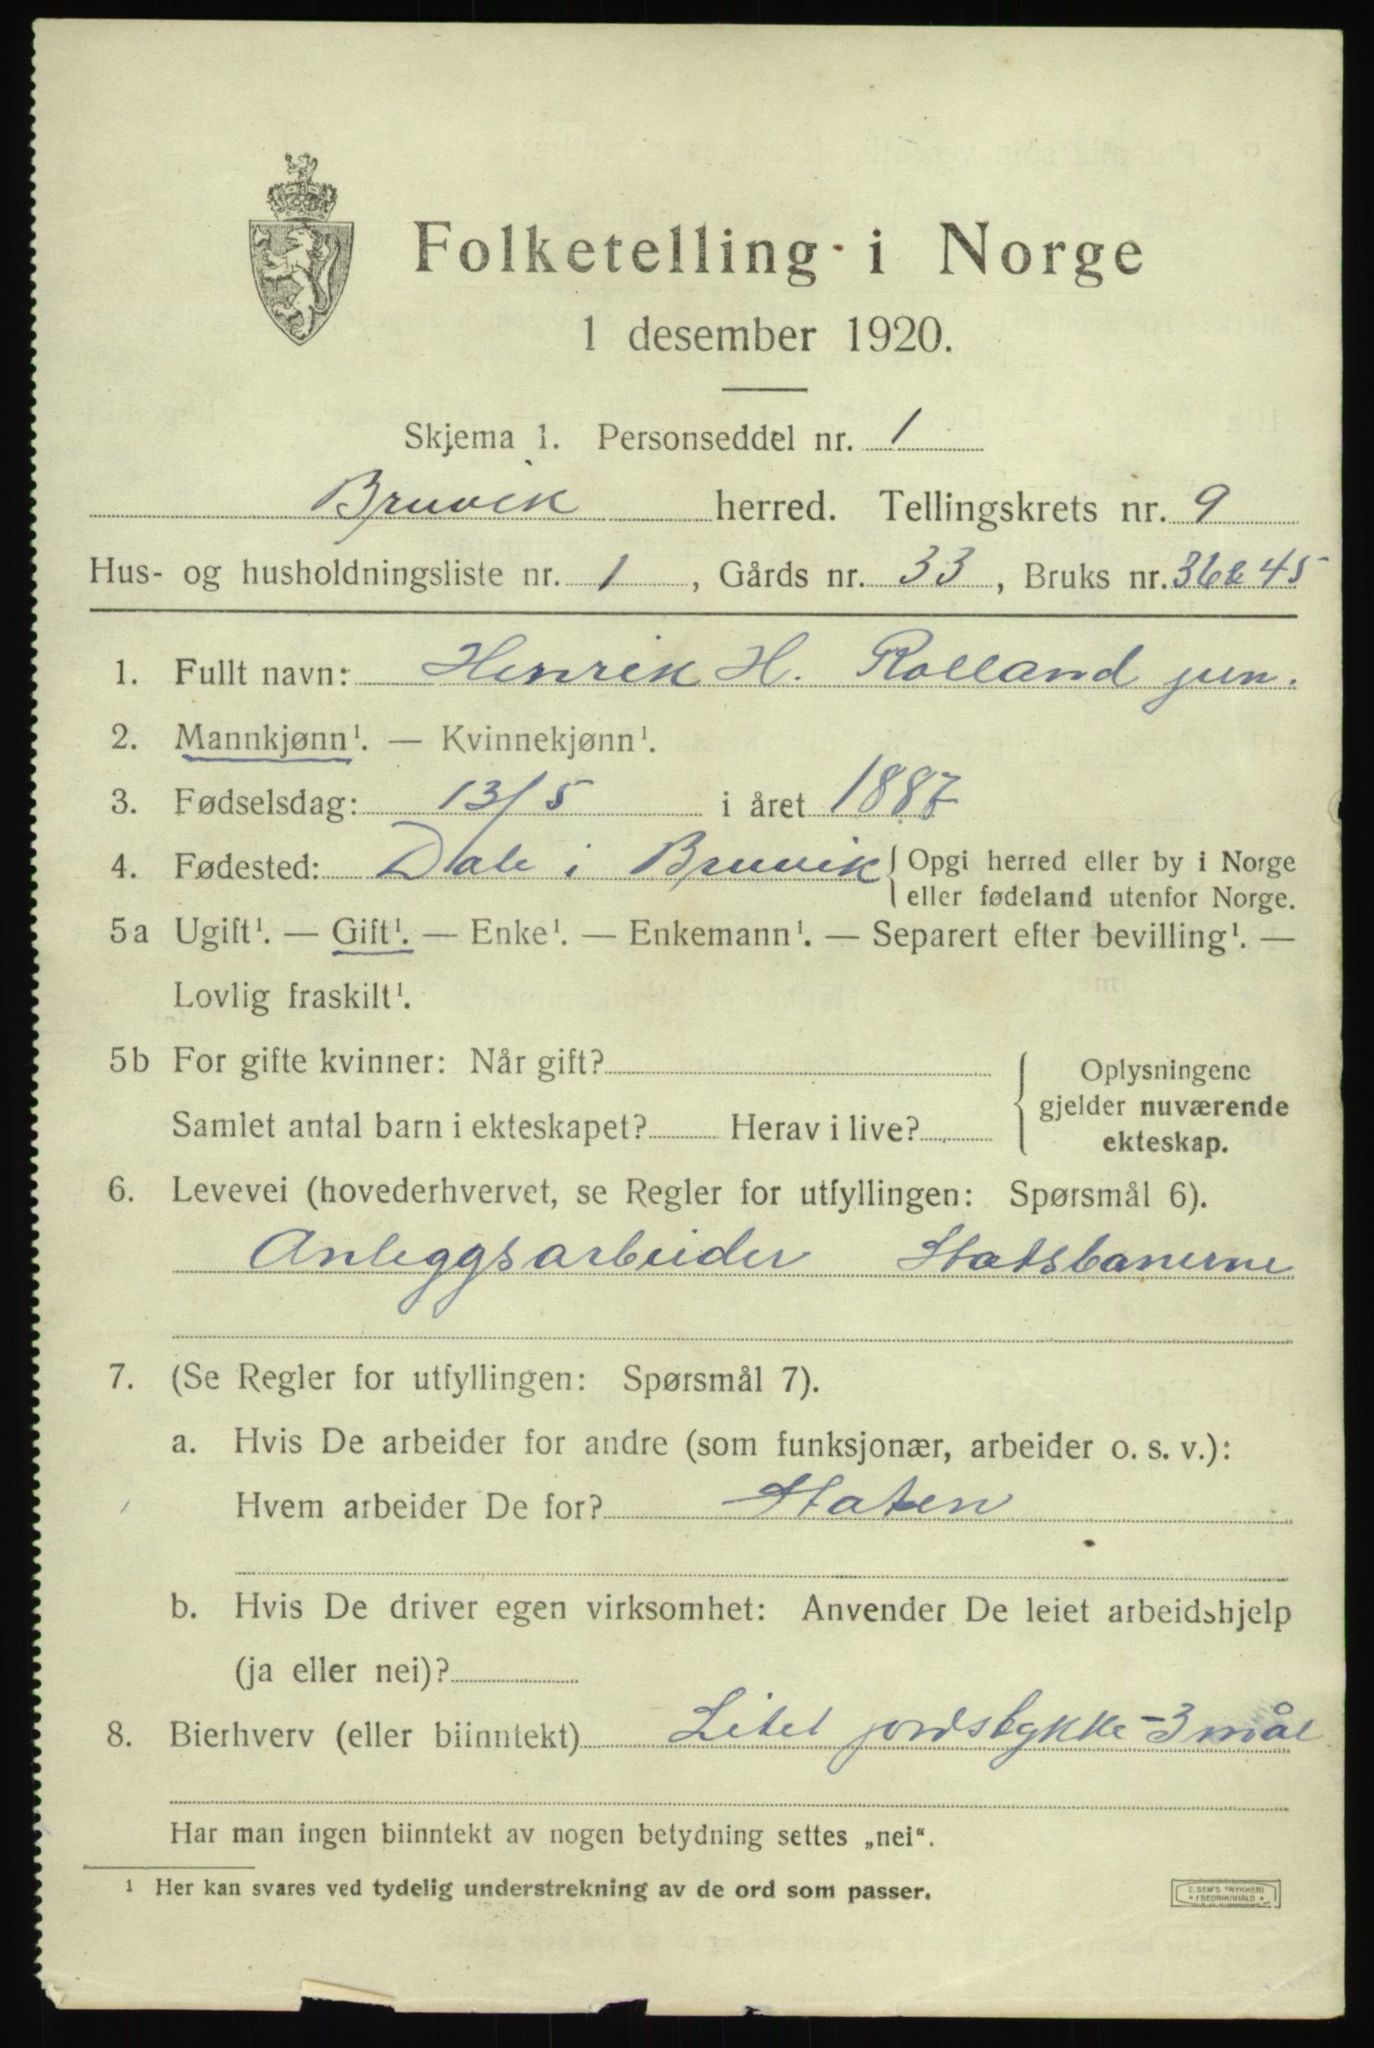 Folketelling i Norge
1 desember 1920.
Skjema 1. Personseddel nr. 1
Bruvik herred. Tellingskrets nr. 9
Hus- og husholdningsliste nr. 1, Gårds nr. 33, Bruks nr. 36 & 45
1. Fullt navn: Henrik H. Rolland jun.
2. Mannkjønn¹. — Kvinnekjønn¹.
3. Fødselsdag: 13/5 i året 1887
4. Fødested: Dale i Bruvik { Opgi herred eller by i Norge
eller fødeland utenfor Norge.
5a Ugift¹. — Gift¹. — Enke¹. — Enkemann¹. — Separert efter bevilling¹. —
Lovlig fraskilt¹.
5b For gifte kvinner: Når gift?
Samlet antal barn i ekteskapet? Herav i live?
{ Oplysningene
gjelder nuværende
ekteskap.
6. Levevei (hovederhvervet, se Regler for utfyllingen: Spørsmål 6).
Anleggsarbeider Statsbanerne
7. (Se Regler for utfyllingen: Spørsmål 7).
a. Hvis De arbeider for andre (som funksjonær, arbeider o. s. v.):
Hvem arbeider De for? Staten
b. Hvis De driver egen virksomhet: Anvender De leiet arbeidshjelp
(ja eller nei)?
8. Bierhverv (eller biinntekt) Litet jordstykke - 3 mål
Har man ingen biinntekt av nogen betydning settes „nei“.
¹ Her kan svares ved tydelig understrekning av de ord som passer.
E. SEM'S TRYKKERI
* FREDRIKSHALD *